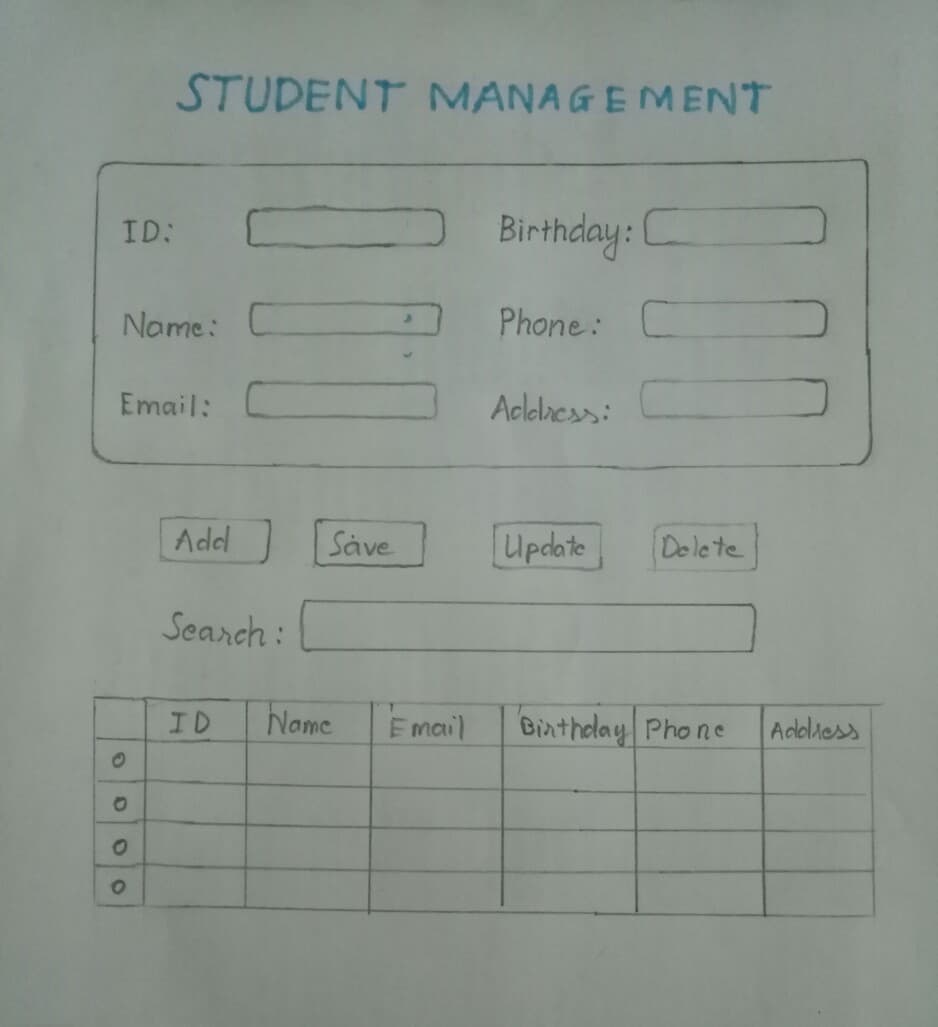 STUDENT MANAGEMENT
ID: Birthday:
Name: Phone:
Email: Address:
Add Save Update Delete
Search:
ID Name Email Birthday Phone Address